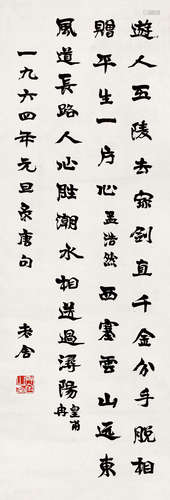 遊人五陵去寶劍直千金分手脫相
贈平生一片心孟浩然西塞雲山遠東
風道長路人心勝潮水相送過潯陽皇甫冉
一九六四年元旦彔唐句
老舍